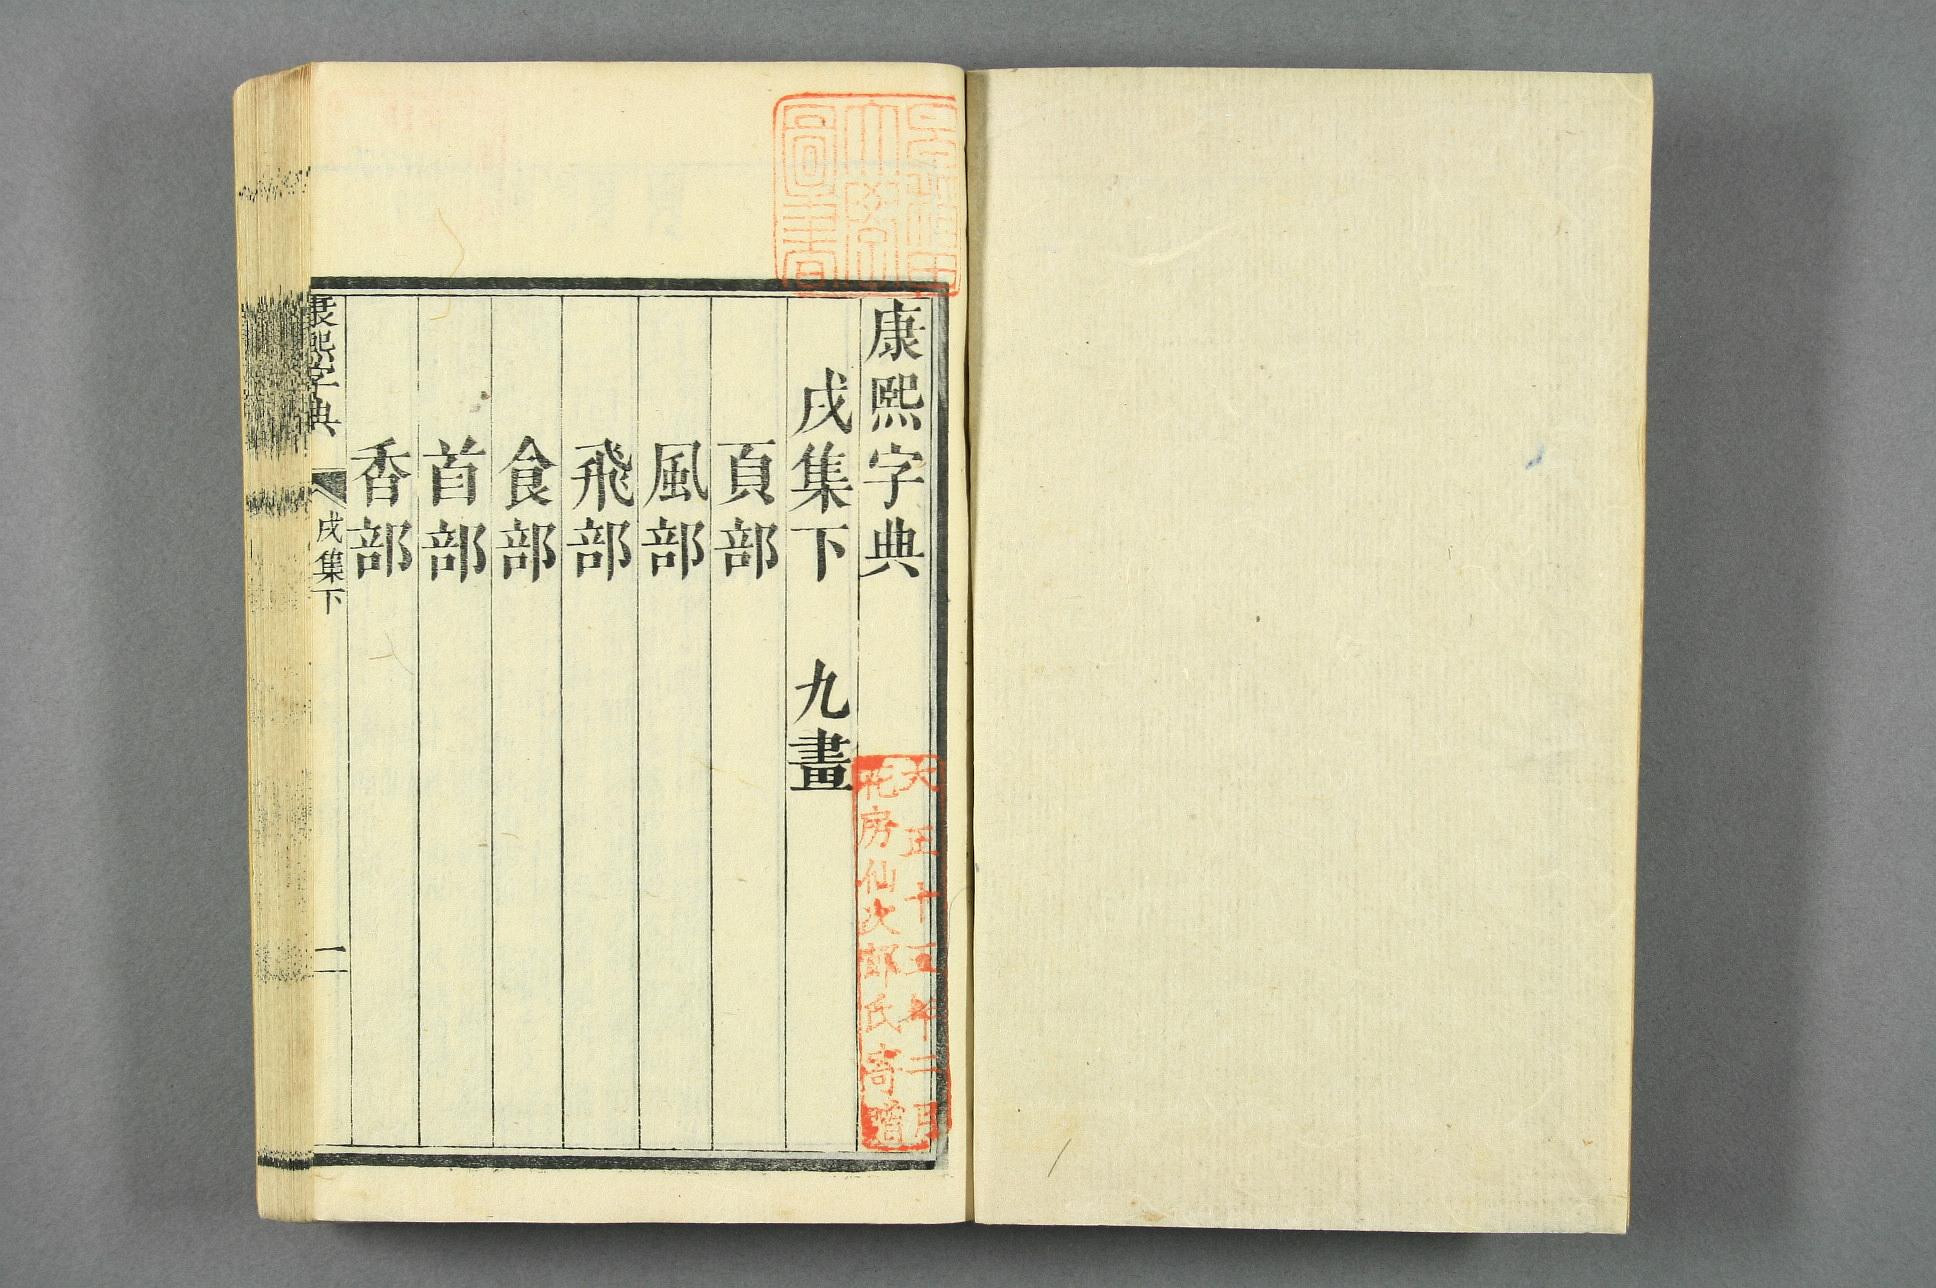 早稲田
大學
圖書
康熙字典
戌集下 九畫
頁部
風部
飛部
食部
首部
香部
康熙字典 戌集下 一
大正十五年十二月
花房仙次郎氏寄贈